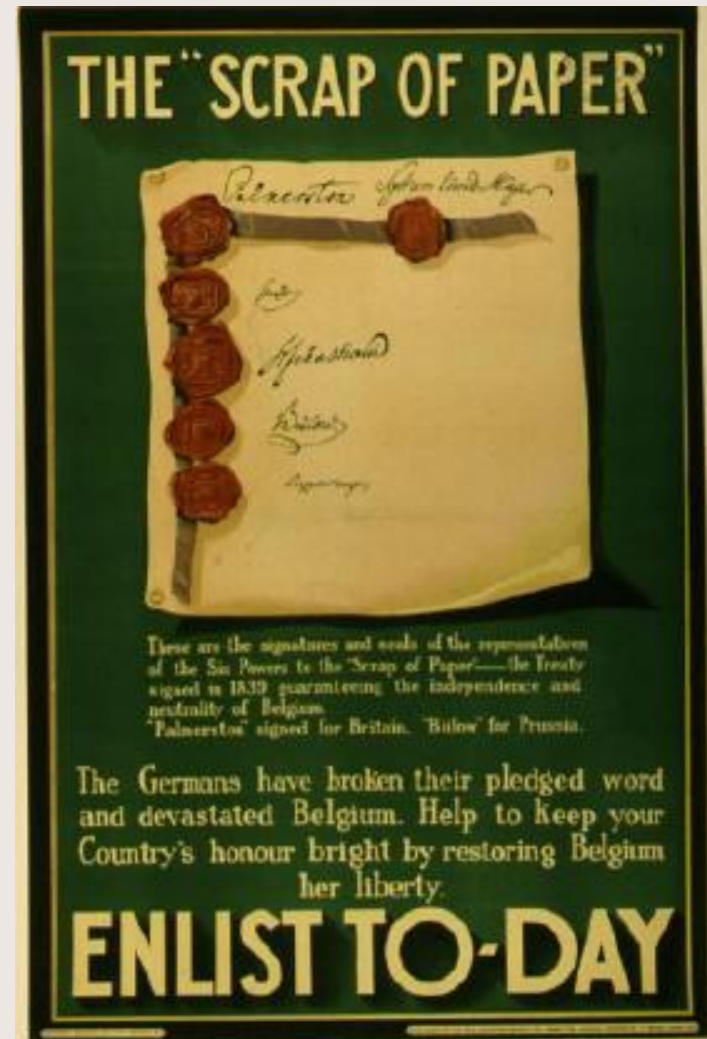 THE "SCRAP OF PAPER"
Palmerston
These are the signatures and seals of the representatives
of the Six Powers to the "Scrap of Paper"—the Treaty
signed in 1839 guaranteeing the independence and
neutrality of Belgium.
"Palmerston" signed for Britain. "Bülow" for Prussia.
The Germans have broken their pledged word
and devastated Belgium. Help to keep your
Country's honour bright by restoring Belgium
her liberty.
ENLIST TO-DAY